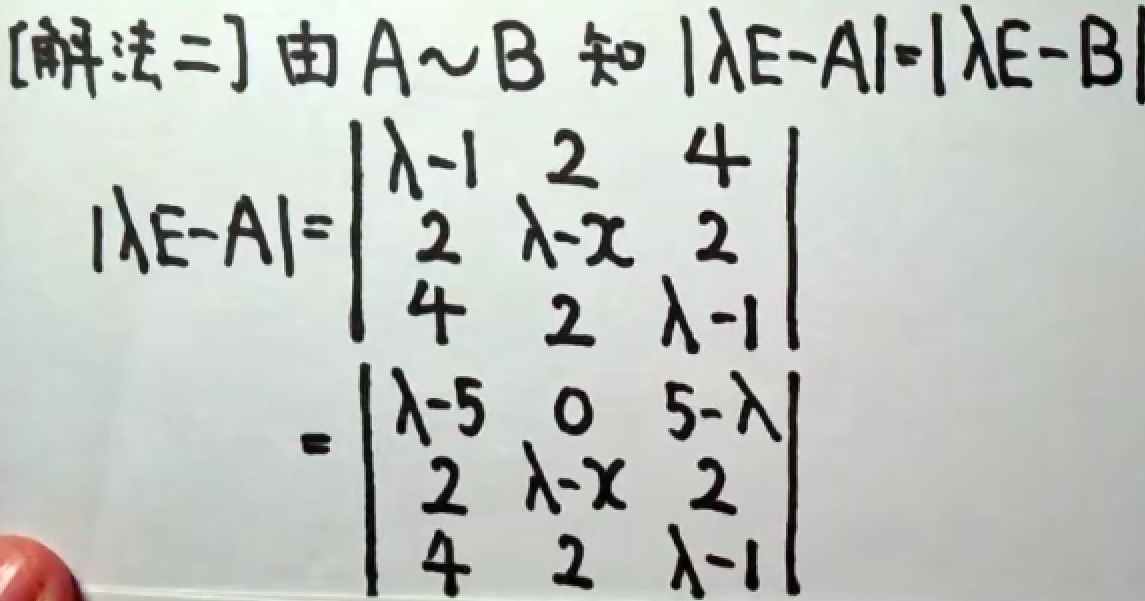 [解法二] 由 A~B 知 |λE-A|=|λE-B|
λ-1 2 4
|λE-A|= 2 λ-x 2
4 2 λ-1
λ-5 0 5-λ
= 2 λ-x 2
4 2 λ-1